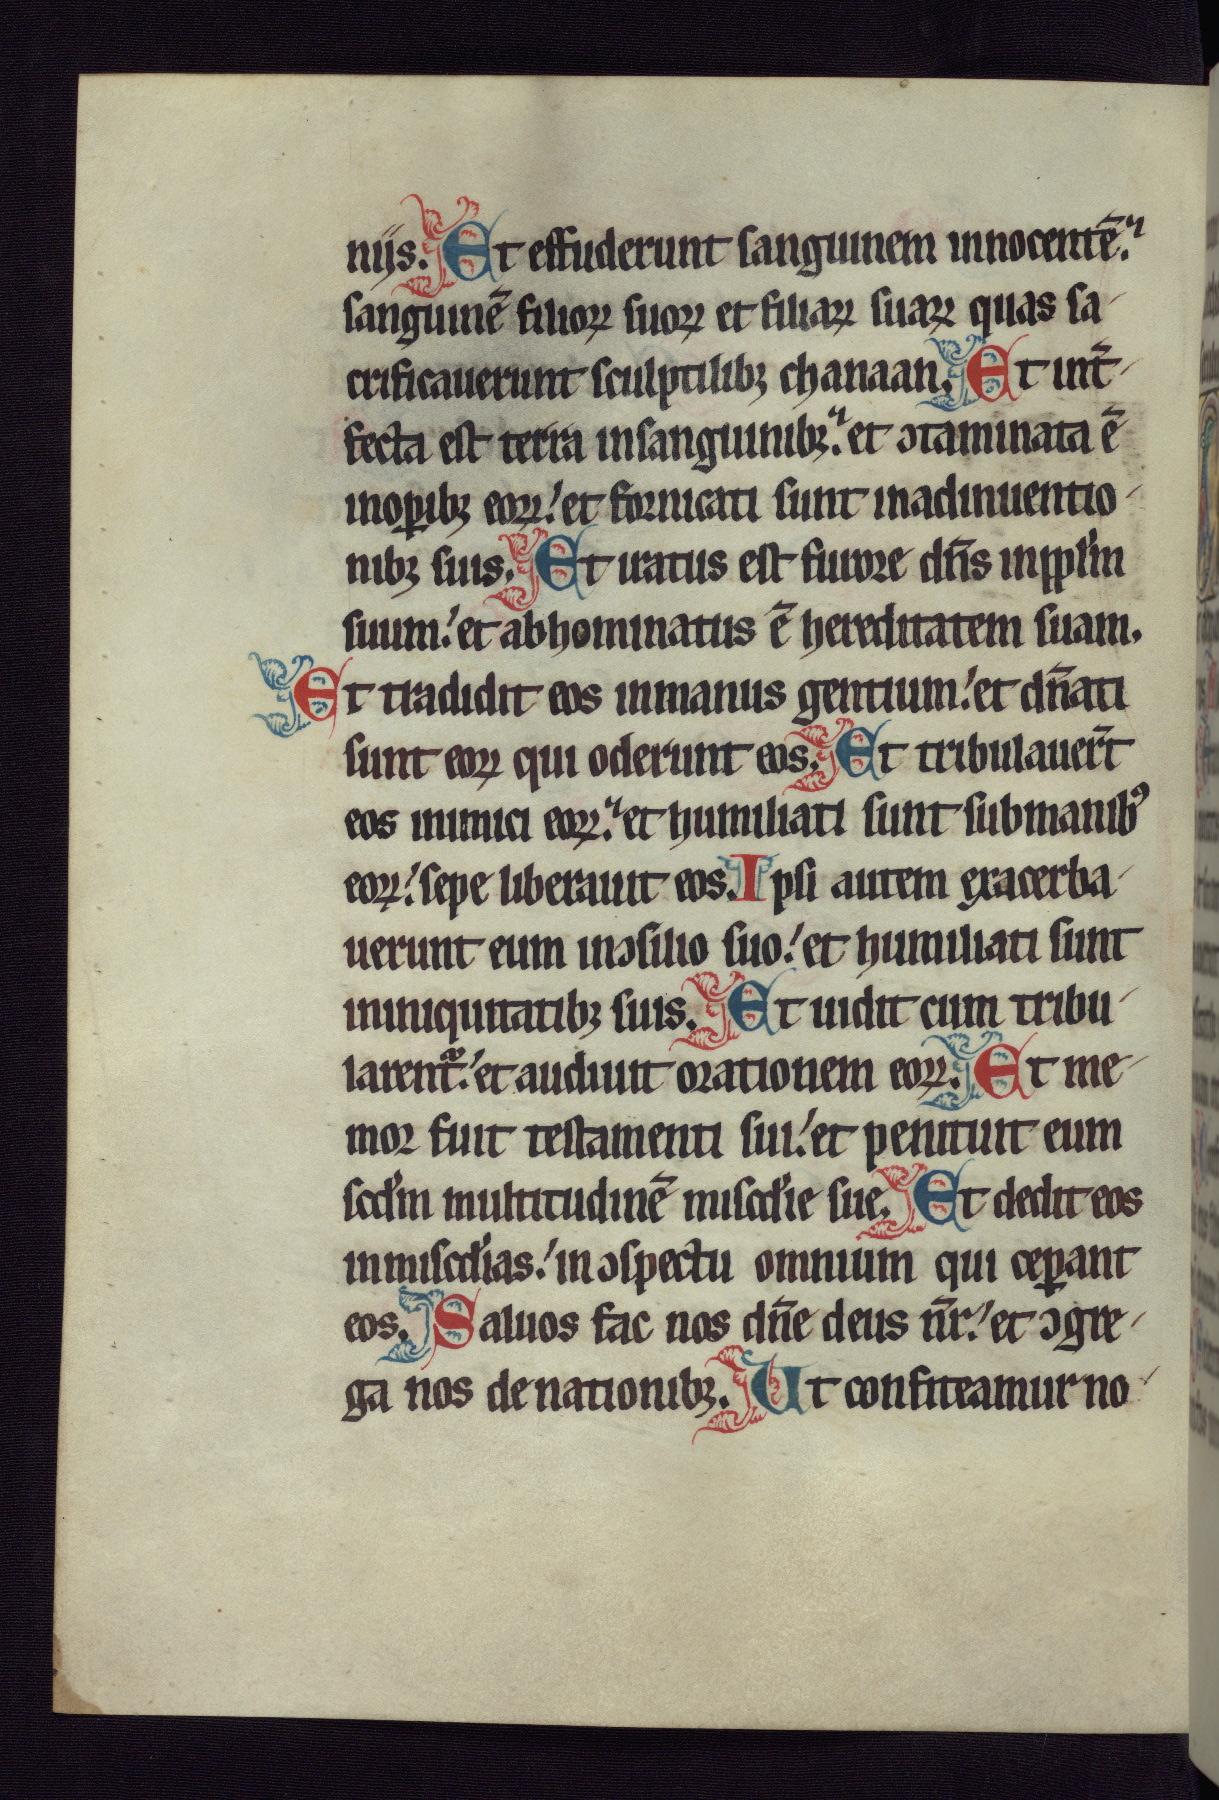 niis. Et effuderunt sanguinem innocentē.
sanguinē filioꝝ suoꝝ et filiaꝝ suaꝝ quas sa-
crificauerunt sculptilibꝫ chanaan. Et int̄-
fecta est terra insanguinibꝫ. et ↄtaminata ē
inoꝑibꝫ eoꝝ. et fornicati sunt inadinuentio-
nibꝫ suis. Et iratus est furore dn̄s inppl̄m
suum. et abhominatus ē hereditatem suam.
Et tradidit eos inmanus gentium. et dn̄ati
sunt eoꝝ qui oderunt eos. Et tribulauer̄t
eos inimici eoꝝ. et humiliati sunt submanibꝰ
eoꝝ. sepe liberauit eos. Ipsi autem exacerba-
uerunt eum inↄsilio suo. et humiliati sunt
ininiquitatibꝫ suis. Et uidit cum tribu-
larent᷑. et audiuit orationem eoꝝ. Et me-
mor fuit testamenti sui. et penituit eum
scd̓m multitudinē miscd̓ie sue. Et dedit eos
inmiscd̓ias. inↄspectu omnium qui ceꝑant
eos. Saluos fac nos dn̄e deus nr̄. et ↄgre-
ga nos denationibꝫ. Ut confiteamur no-